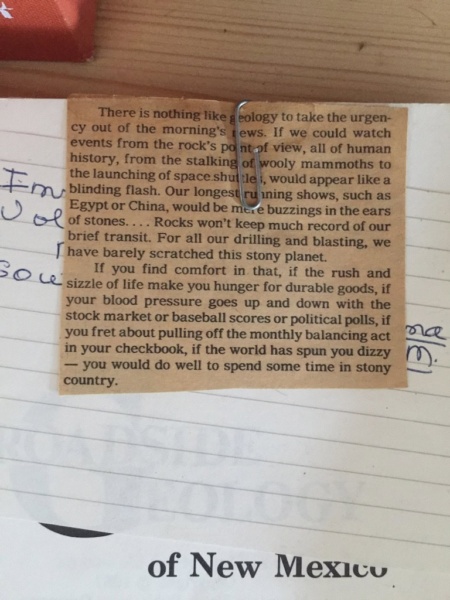 There is nothing like geology to take the urgen-
cy out of the morning's news. If we could watch
events from the rock's point of view, all of human
history, from the stalking of wooly mammoths to
the launching of space shuttles, would appear like a
blinding flash. Our longest running shows, such as
Egypt or China, would be mere buzzings in the ears
of stones. . . . Rocks won't keep much record of our
brief transit. For all our drilling and blasting, we
have barely scratched this stony planet.
If you find comfort in that, if the rush and
sizzle of life make you hunger for durable goods, if
your blood pressure goes up and down with the
stock market or baseball scores or political polls, if
you fret about pulling off the monthly balancing act
in your checkbook, if the world has spun you dizzy
— you would do well to spend some time in stony
country.
ROADSIDE
GEOLOGY
of New Mexico